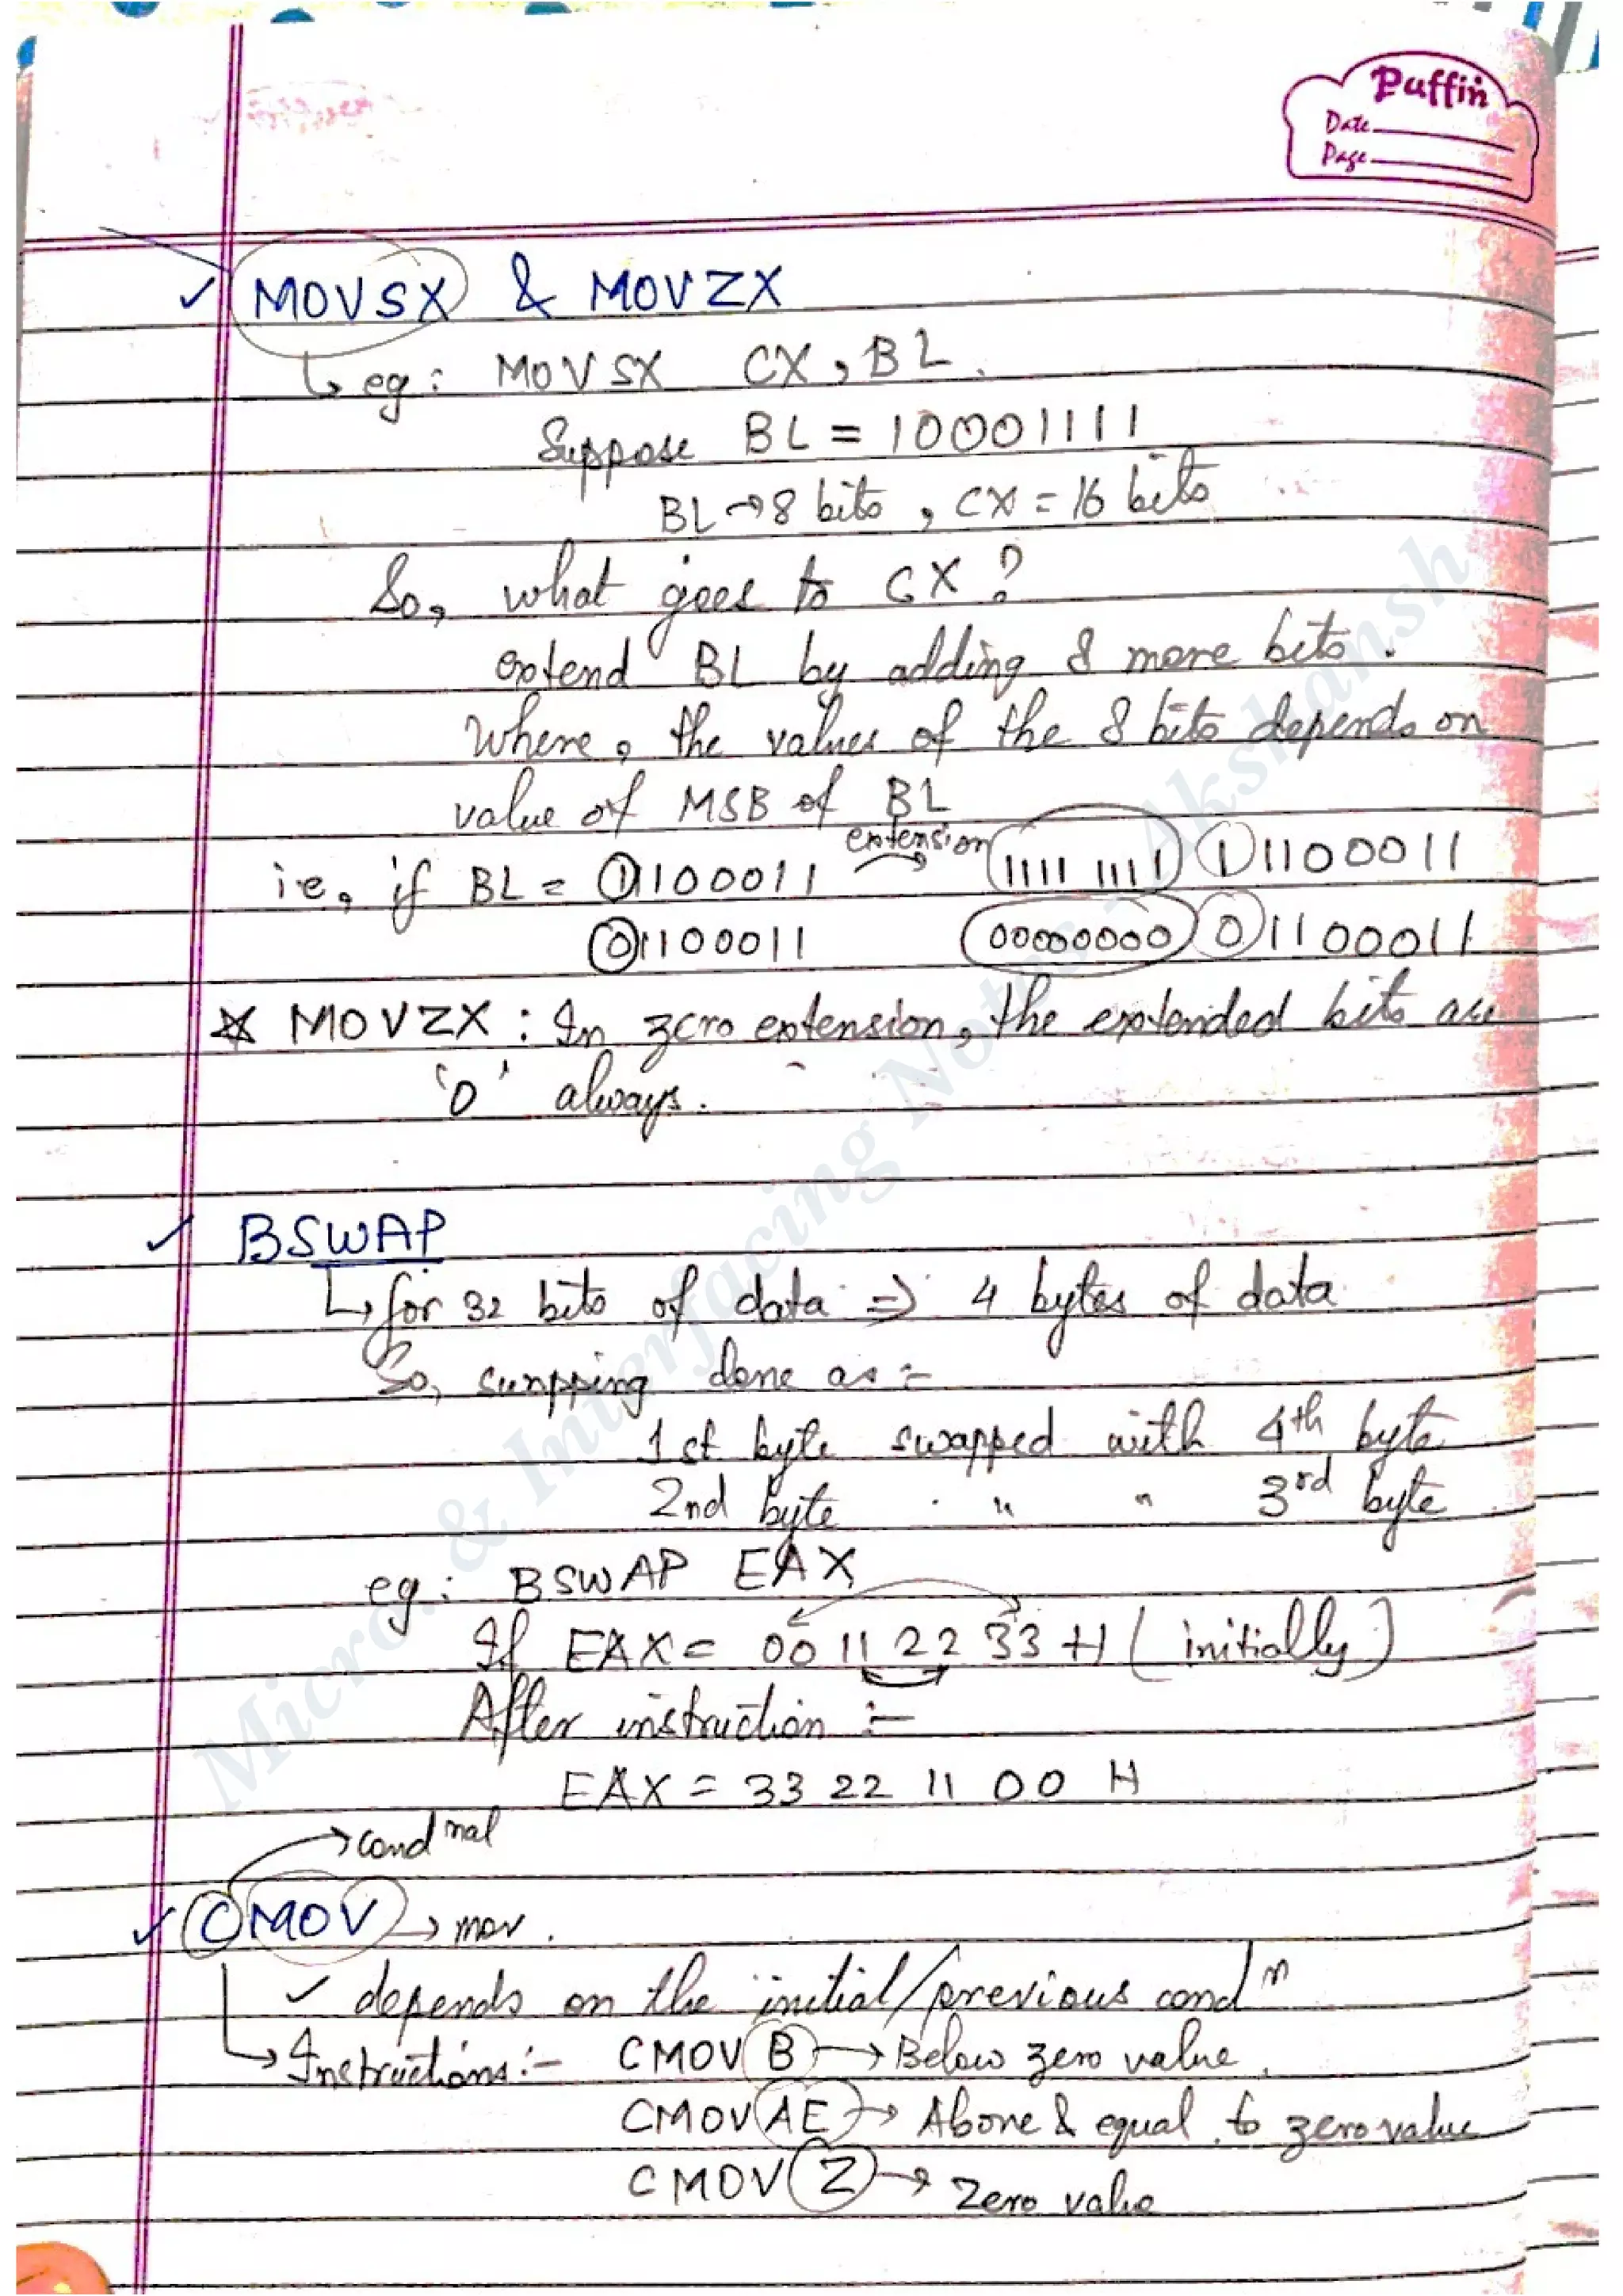 Puffin
Date
Page
✓ MOVSX & MOVZX
↳ eg: MOVSX CX, BL.
Suppose BL = 10001111
BL → 8 bits, CX = 16 bits
So, what goes to CX?
extend BL by adding 8 more bits.
Where, the values of the 8 bits depends on
value of MSB of BL
extension
i.e, if BL = 11100011 → 1111 1111 11100011
01100011 00000000 01100011
☆ MOVZX : In zero extension, the extended bits are
'0' always.
✓ BSWAP
↳ for 32 bits of data ⇒ 4 bytes of data
So, swapping done as :-
1st byte swapped with 4th byte
2nd byte " " 3rd byte
eg: BSWAP EAX
If EAX = 00 11 22 33 H (initially)
After instruction :-
EAX = 33 22 11 00 H
→ condnal
✓ CMOV → mov.
✓ depends on the initial/previous condn
↳ Instructions :- CMOVB → Below zero value.
CMOVAE → Above & equal to zero value
CMOVZ → Zero value
Micro. & Interfacing Notes - Akshansh